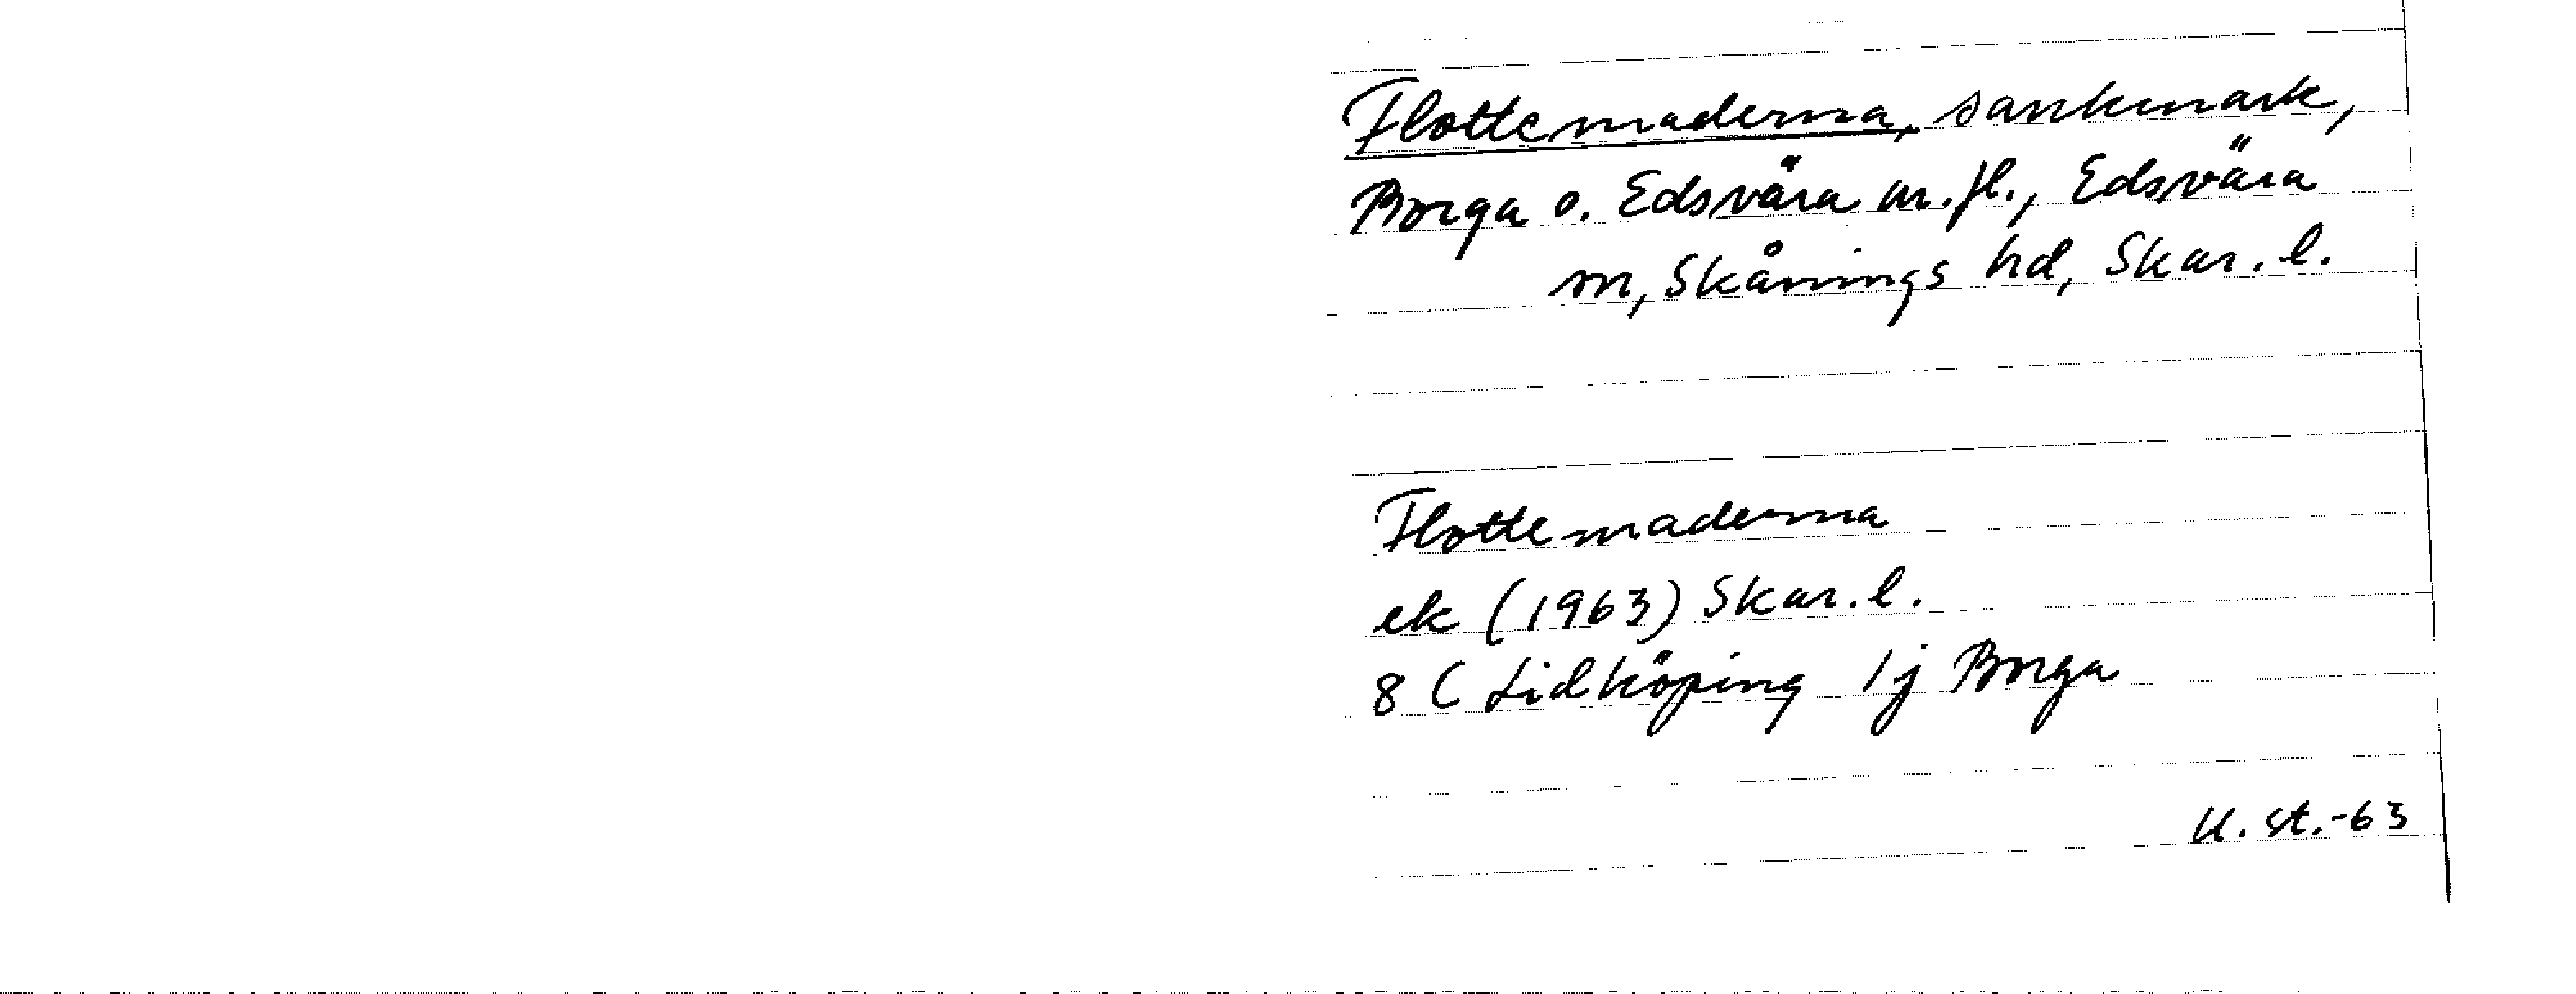 Flottemaderna, sankmark,
Borga o. Edsvära m.fl., Edsvära
sn, Skånings hd, Skar. l.
Flottemaderna
ek (1963) Skar. l.
8 C Lidköping 1j Borga
U. st. -63